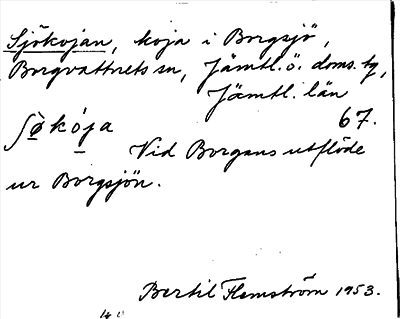 Sjökojan, koja i Borgsjö,
Borgvattnets sn, Jämtl. ö. doms. tg,
Jämtl. län
67.
Vid Borgans utflöde
ur Borgsjön.
Bertil Flemström 1953.